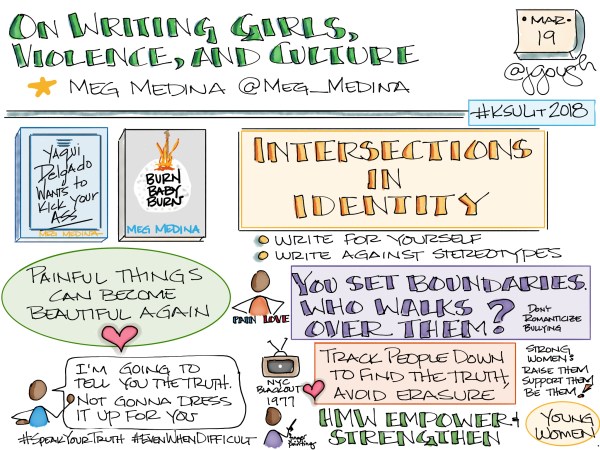 On Writing Girls,
Violence, and Culture
Meg Medina @Meg_Medina
MAR.
19
@jgough
#KSULit2018
Yaqui
Delgado
Wants to
Kick Your
Ass
MEG MEDINA
BURN
BABY
BURN
MEG MEDINA
INTERSECTIONS
IN
IDENTITY
WRITE FOR YOURSELF
WRITE AGAINST STEREOTYPES
PAINFUL THINGS
CAN BECOME
BEAUTIFUL AGAIN
PAIN LOVE
YOU SET BOUNDARIES.
WHO WALKS
OVER THEM?
DON'T
ROMANTICIZE
BULLYING
I'M GOING TO
TELL YOU THE TRUTH.
NOT GONNA DRESS
IT UP FOR YOU
#SpeakYourTruth #EvenWhenDifficult
NYC
BLACKOUT
1977
TRACK PEOPLE DOWN
TO FIND THE TRUTH,
AVOID ERASURE
STRONG
WOMEN:
RAISE THEM
SUPPORT THEM
BE THEM!
HMW EMPOWER +
STRENGTHEN
YOUNG
WOMEN